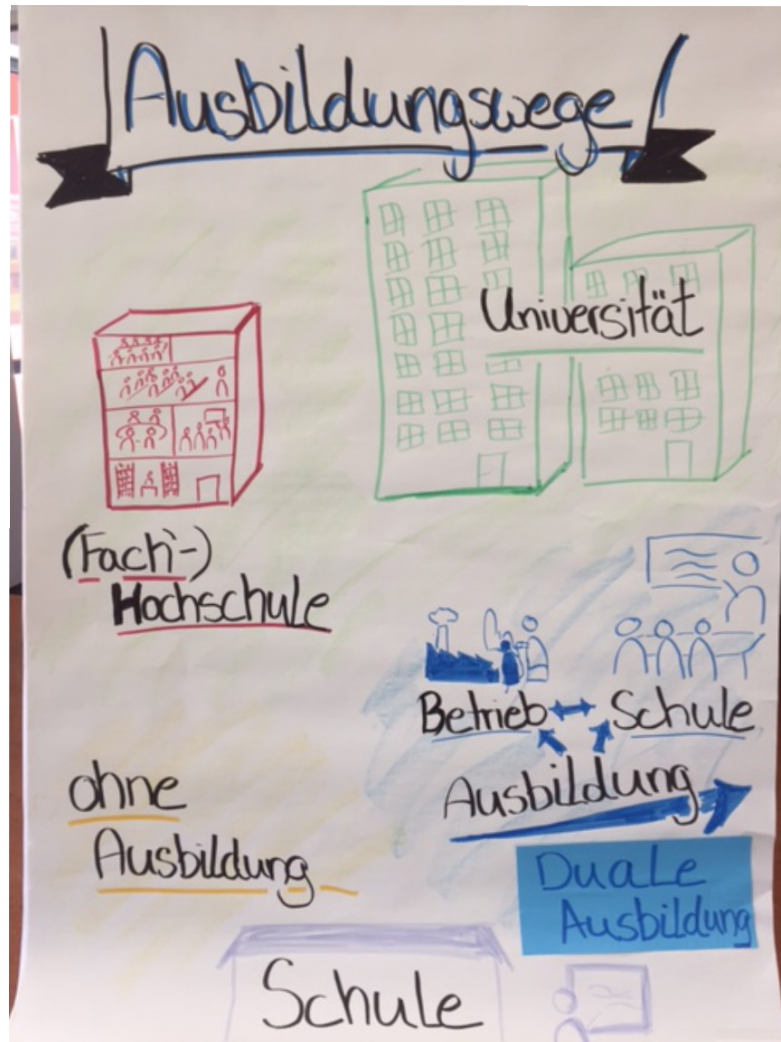 Ausbildungswege
Universität
(Fach-)
Hochschule
Betrieb ↔ Schule
Ausbildung
ohne
Ausbildung
Duale
Ausbildung
Schule